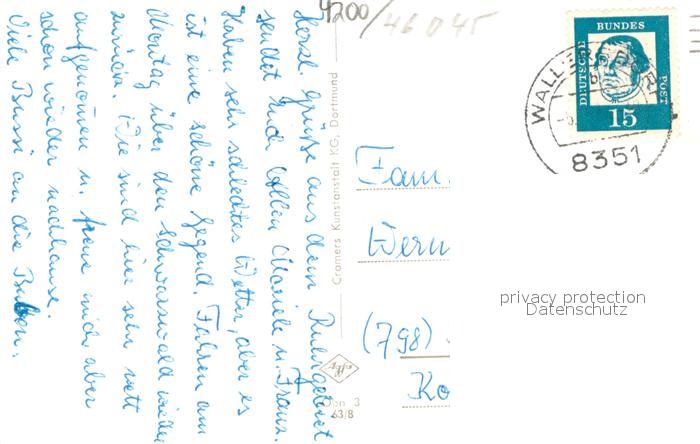 4200/46045
Herzl. Grüße aus dem Ruhrgebiet
sendet Euch Allen Mariele u. Franz.
Haben sehr schlechtes Wetter, aber es
ist eine schöne Gegend. Fahren am
Montag über den Schwarzwald wieder
zurück. Wir sind hier sehr nett
aufgenommen u. freue mich aber
schon wieder nachhause.
Viele Bussi an die Buben.
Cramers Kunstanstalt KG, Dortmund
3
63/8
DEUTSCHE
BUNDES
POST
15
8351
Fam.
Wern
(798)
Ko
privacy protection
Datenschutz